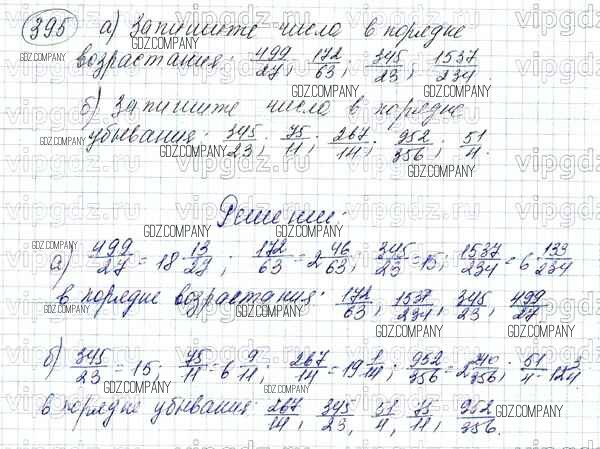 395 а) Запишите числа в порядке
возрастания: 499/27; 172/63; 345/23; 1537/234.
б) Запишите числа в порядке
убывания: 345/23; 75/11; 267/14; 952/356; 51/4.
Решение:
а) 499/27 = 18 13/27; 172/63 = 2 46/63; 345/23 = 15; 1537/234 = 6 133/234
в порядке возрастания: 172/63, 1537/234, 345/23, 499/27
б) 345/23 = 15; 75/11 = 6 9/11; 267/14 = 19 1/14; 952/356 = 2 240/356; 51/4 = 12 3/4
в порядке убывания: 267/14, 345/23, 51/4, 75/11, 952/356.